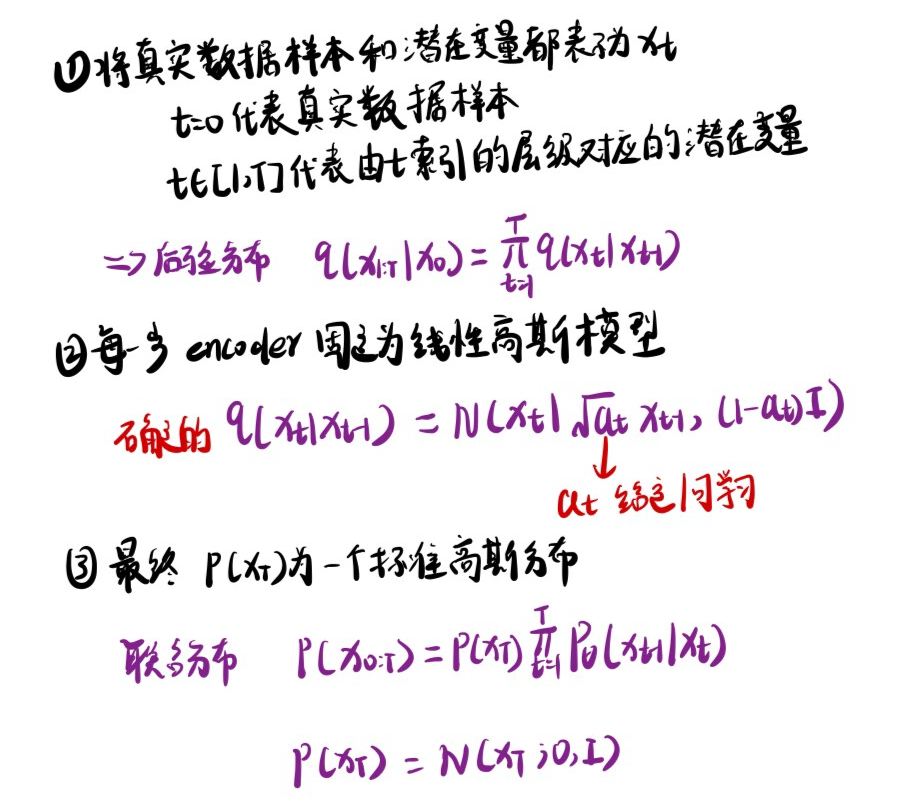 ①将真实数据样本和潜在变量都表示为 xt
t=0代表真实数据样本
t∈[1,T]代表由t索引的层级对应的潜在变量
=>后验分布 q(x1:T|x0) = ∏_{t=1}^{T} q(xt|xt-1)
②每一步 encoder 固定为线性高斯模型
确定的 q(xt|xt-1) = N(xt|√at xt-1, (1-at)I)
↓
at 给定/可学习
③最终 P(xT)为一个标准高斯分布
联合分布 P(x0:T) = P(xT) ∏_{t=1}^{T} Pθ(xt-1|xt)
P(xT) = N(xT;0,I)